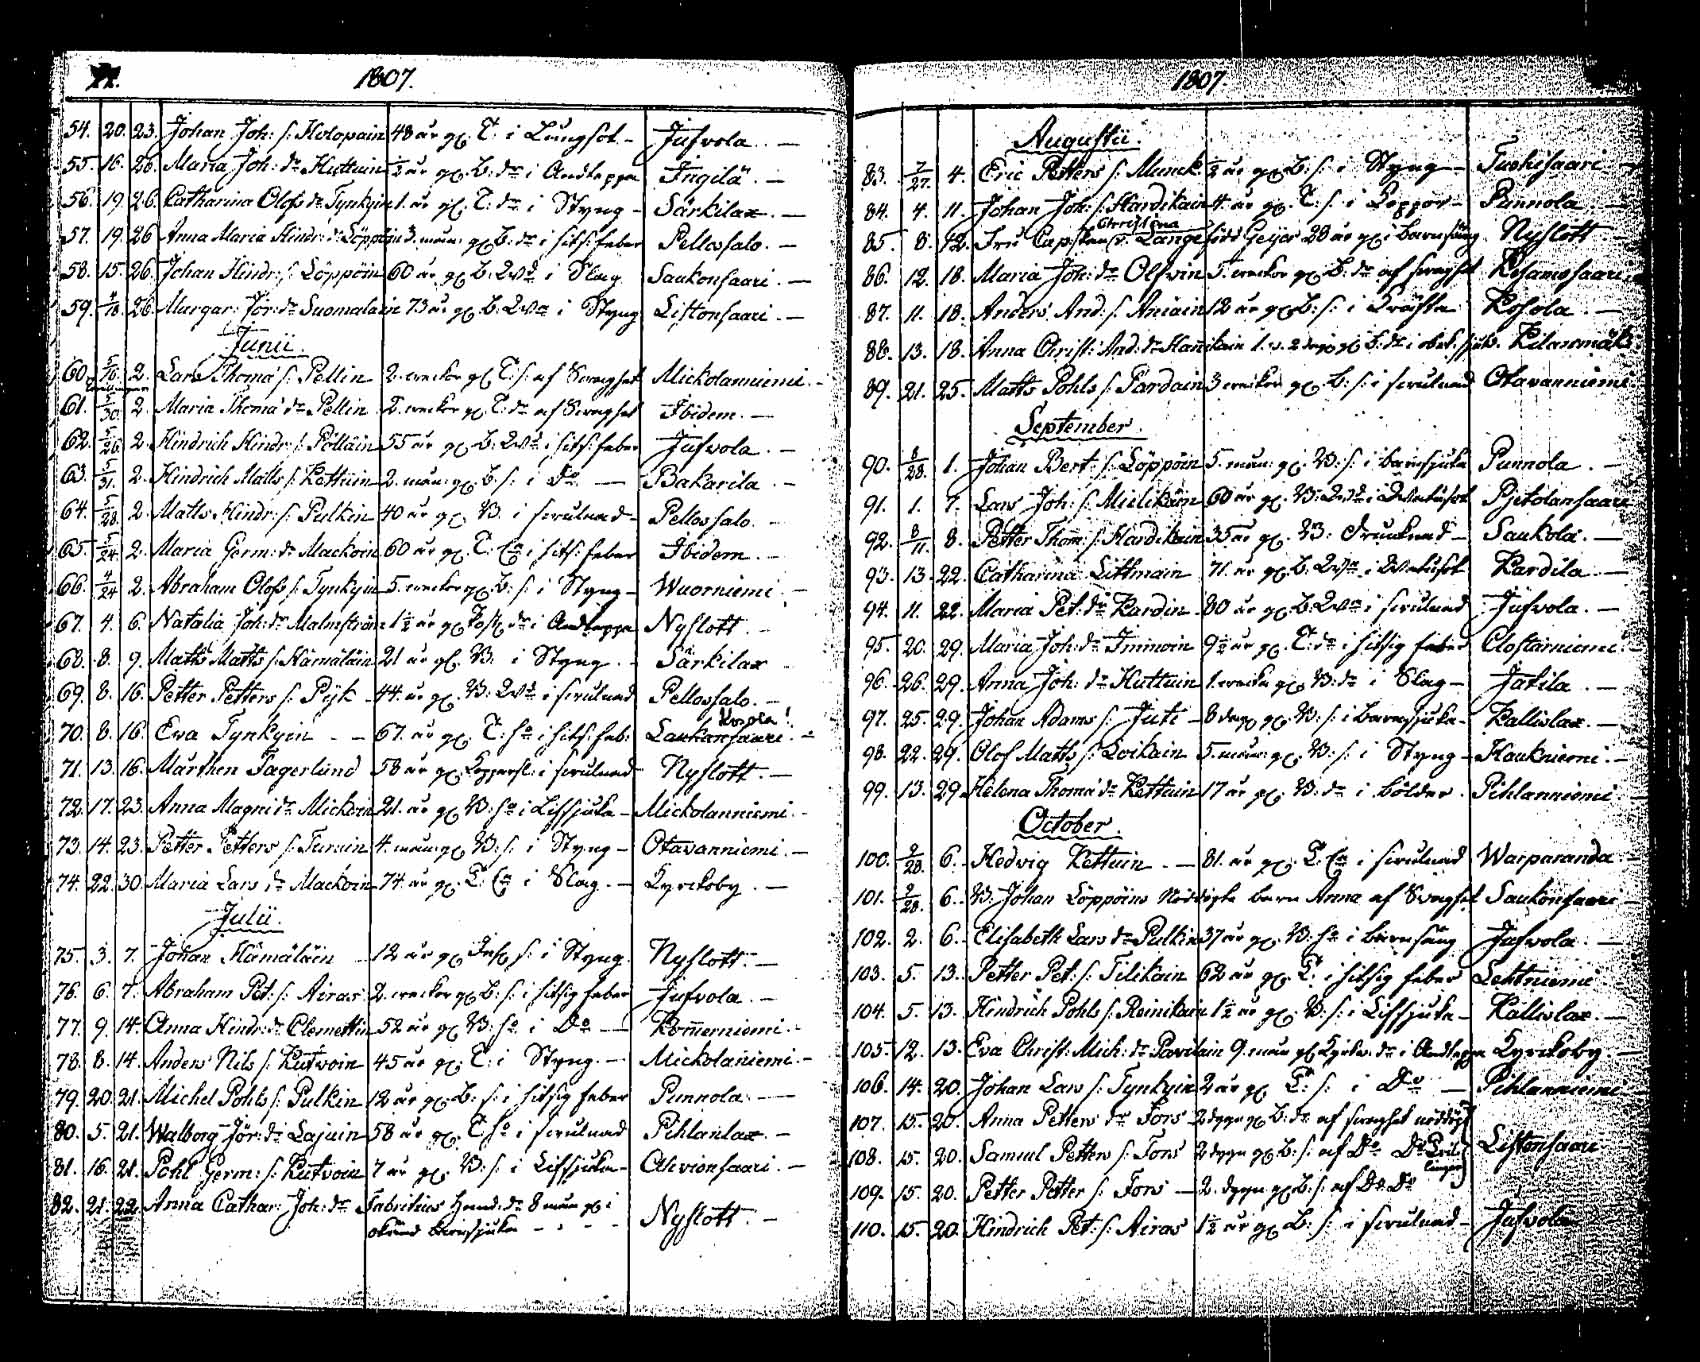 1807.
54. 20. 23. Johan Joh: s: Holopain 48 år gl. T: i Lungsot - Jufvola. -
55. 16. 26. Maria Joh: dr Huttuin ½ år gl. B: dr i Andtäppa Ingilä. -
56. 19. 26. Catharina Olofs dr Tynkyin 1. år gl. T: dr i Styng - Särkilax. -
57. 19. 26 Anna Maria Hindr: dr Löppöin 3. mån: gl. B: dr i hits: feber Pellossalo. -
58. 15. 26. Johan Hindr: s: Löppöin 60 år gl. B. i Slag Saukonsaari. -
59. 4/18. 26. Margar: Jör: dr Suomalain 73 år gl. B. i Styng Listonsaari. -
Junii.
60. 5/16. 2. Lars Thoma s: Pellin 2. weckor gl. T: s: af Swaghet Mickolanniemi. -
61. 5/30. 2. Maria Thoma dr Pellin 2. weckor gl. T: dr af Swaghet Ibidem. -
62. 5/26. 2. Hindrich Hindr: s: Pölläin 55 år gl. B: i hits: feber Jufvola. -
63. 5/31. 2. Hindrich Matts s: Kettuin 2. mån: gl. B. s: i Do - Pakarila. -
64. 5/28. 2. Matts Hindr: s: Pulkin 40 år gl. B. i swulnad - Pellossalo. -
65. 5/24. 2. Maria Germ: dr Mackoin 60 år gl. T: i hits: feber Ibidem. -
66. 4/24 2. Abraham Olofs s: Tynkyin 5. weckor gl. B: s: i Styng - Wuorniemi. -
67. 4. 6. Natalia Joh: dr Malmström 1½ år gl. dr i Andtäppa Nyslott. -
68. 8. 9. Matts Matts s: Hämäläin 21 år gl. B. i Styng. - Särkilax -
69. 8. 16. Petter Petters s: Pijk - 44. år gl. B: i swulnad Pellossalo. -
70. 8. 16. Eva Tynkyin - - 67. år gl. T: i hits: feb:
71. 13. 16. Märthen Fagerlund 58 år gl. i swulnad Nyslott. -
72. 17. 23. Anna Magni dr Mickoin 21. år gl. B: i Lifsjuka - Mickolanniemi. -
73. 14. 23. Petter Petters s: Turuin 4. mån: gl. B: s: i Styng - Otavanniemi. -
74. 22. 30. Maria Lars dr Mackoin 74. år gl. T: i Slag. - Kyrckoby. -
Julii.
75. 3. 7. Johan Hämäläin - 12 år gl. s: i Styng. Nyslott. -
76. 6. 7. Abraham Pet: s: Airas 2. weckor gl. B: s: i hitsig feber Jufvola. -
77. 9. 14. Anna Hindr: dr Clemettin 52 år gl. B: i Do - Kommerniemi. -
78. 8. 14. Anders Nils s: Kutvoin 45 år gl. T: i Styng - Mickolaniemi -
79. 20. 21. Michel Pohls s: Pulkin 12 år gl. B: s: i hitsig feber Punnola. -
80. 5. 21. Walborg Jör: dr Lajuin 58 år gl. T: i swulnad Pihlanlax. -
81. 16. 21. Pohl Germ: s: Kutvoin 7 år gl. B: s: i Lifsjuka - Ahvionsaari. -
82. 21. 22. Anna Cathar: Joh: dr Fabritius dr 8 mån gl. i
okänd Barnsjuka - - - Nyslott. -
1807.
Augusti.
83. 7/27. 4. Eric Petters s: Munck ½ år gl. B: s: i Styng - Tuohisaari -
84. 4. 11. Johan Joh: s: Hardikain 4. år gl. T: s: i Koppor - Punnola. -
Christina
85. 8. 12. Fru Capitain v. Lange född Geijer 28 år gl. i barnsäng. Nyslott
86. 12. 18. Maria Joh: dr Olfvin 5. weckor gl. B. dr af swaghet Kesamosaari
87. 11. 18. Anders And: s: Aniain 12 år gl. B: s: i Kräfta Kosola. -
88. 13. 18. Anna Christ: And: dr
89. 21. 25. Matts Pohls s: Pardain 3 weckor gl. B: s: i swulnad Otavanniemi
September.
90. 8/28. 1. Johan Bert: s: Löppöin 5. mån: gl. B: s: i barnsjuka Punnola. -
91. 1. 7. Lars Joh: s: Mielikäin 60 år gl. B: i Wattusot
92. 8/11. 8. Petter Thom: s: Hardikain 35 år gl. B: drucknad - Saukola. -
93. 13. 22. Catharina Littmain 71. år gl. B: i Wattusot Kardila. -
94. 11. 22. Maria Pet: dr Kardin 80 år gl. B: i swulnad Jufvola. -
95. 20. 29. Maria Joh: dr Immoin 9½ år gl. T: dr i hitsig feber Clostarniemi. -
96. 26. 29. Anna Joh: dr Huttuin 1. wecka gl. B: dr i Slag - Jatila. -
97. 25. 29. Johan Adams s: Juti - 8 dagar gl. B: s: i Barnsjuka - Kallislax. -
98. 22. 29. Olof Matts s: Loikain 5. mån: gl. B: s: i Styng - Haukniemi. -
99. 13. 29. Helena Thoma dr Kettuin 17 år gl. B: dr i bölder. Pihlanniemi -
October.
100. 9/28. 6. Hedvig Kettuin. - 81. år gl. T: i swulnad Warparanda. -
101. 9/28. 6. B: Johan Löppöins Nöddöpta barn Anna af Swaghet Saukonsaari -
102. 2. 6. Elisabeth Lars dr Pulkin 37 år gl. B: i Barnsäng Jufvola. -
103. 5. 13. Petter Pet: s: Tilikain 62 år gl. T: i hitsig feber Lehtniemi
104. 5. 13. Hindrich Pohls s: Reinikain 1½ år gl. B: s: i Lifsjuka - Kallislax. -
105. 12. 13. Eva Christ: Mich: dr Pavilain 9. mån gl. dr i Andtäppa Kyrckoby -
106. 14. 20. Johan Lars s: Tynkyin 2 år gl. T: s: i Do - Pihlanniemi
107. 15. 20. Anna Petters dr Fors 2 dygn gl. B: dr af swaghet nöddöpt
108. 15. 20. Samuel Petters s: Fors 2 dygn gl. B: s: af Do Do Listonsaari
109. 15. 20. Petter Petter s: Fors - 2. dygn gl. B: s: af Do Do
110. 15. 20. Hindrich Pet: s: Airas 1½ år gl. B: s: i swulnad - Jufvola